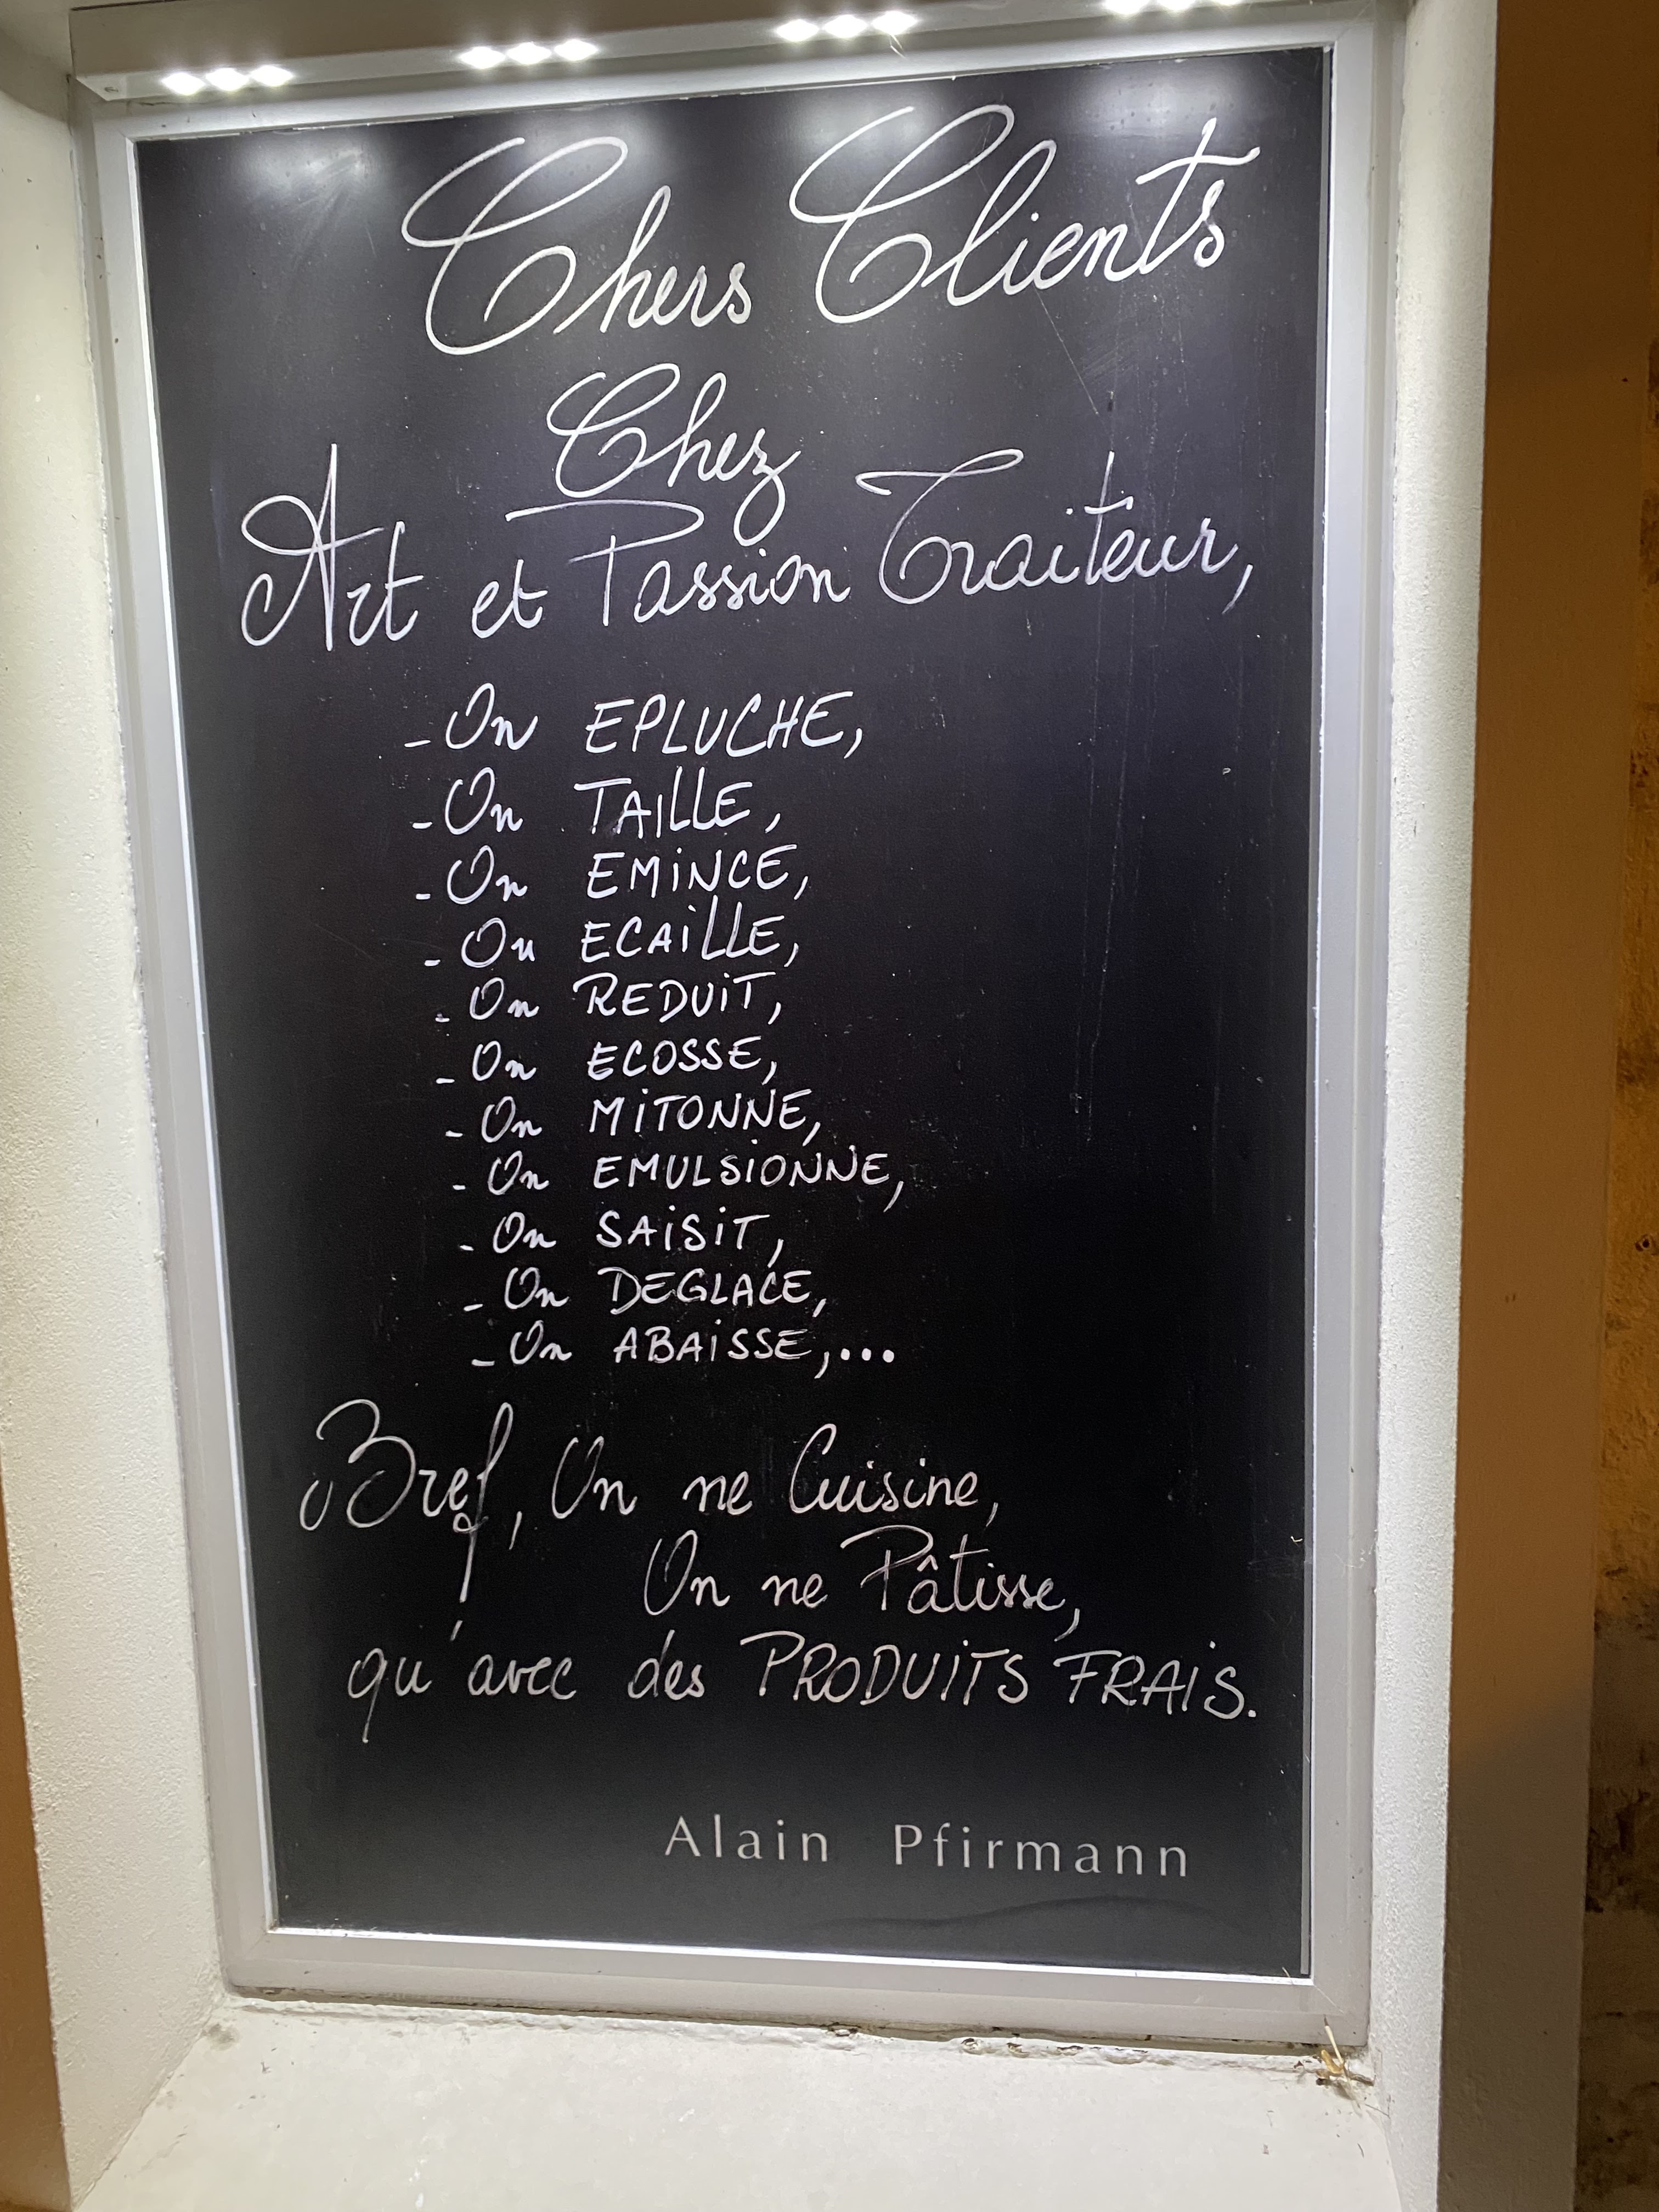 Chers Clients
Chez
Art et Passion Traiteur,
- On EPLUCHE,
- On TAiLLE,
- On EMiNCE,
- On ECAiLLE,
- On REDUiT,
- On ECOSSE,
- On MiTONNE,
- On EMULSIONNE,
- On SAiSiT,
- On DEGLACE,
- On ABAiSSE,...
Bref, On ne Cuisine,
On ne Pâtisse,
qu'avec des PRODUiTS FRAiS.
Alain Pfirmann